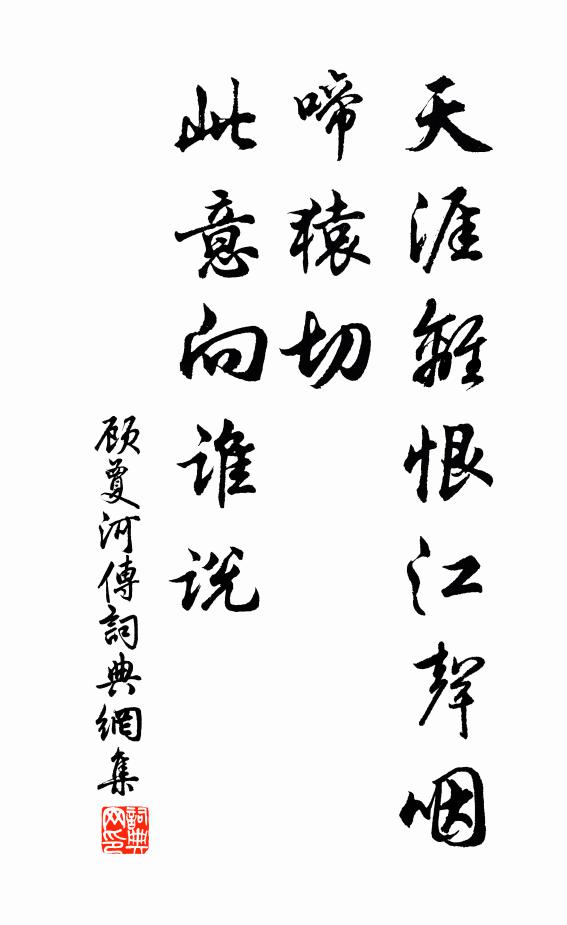 天涯離恨江聲咽
啼猿切
此意向谁説
顾敻河傳詞典網集
詞典网印